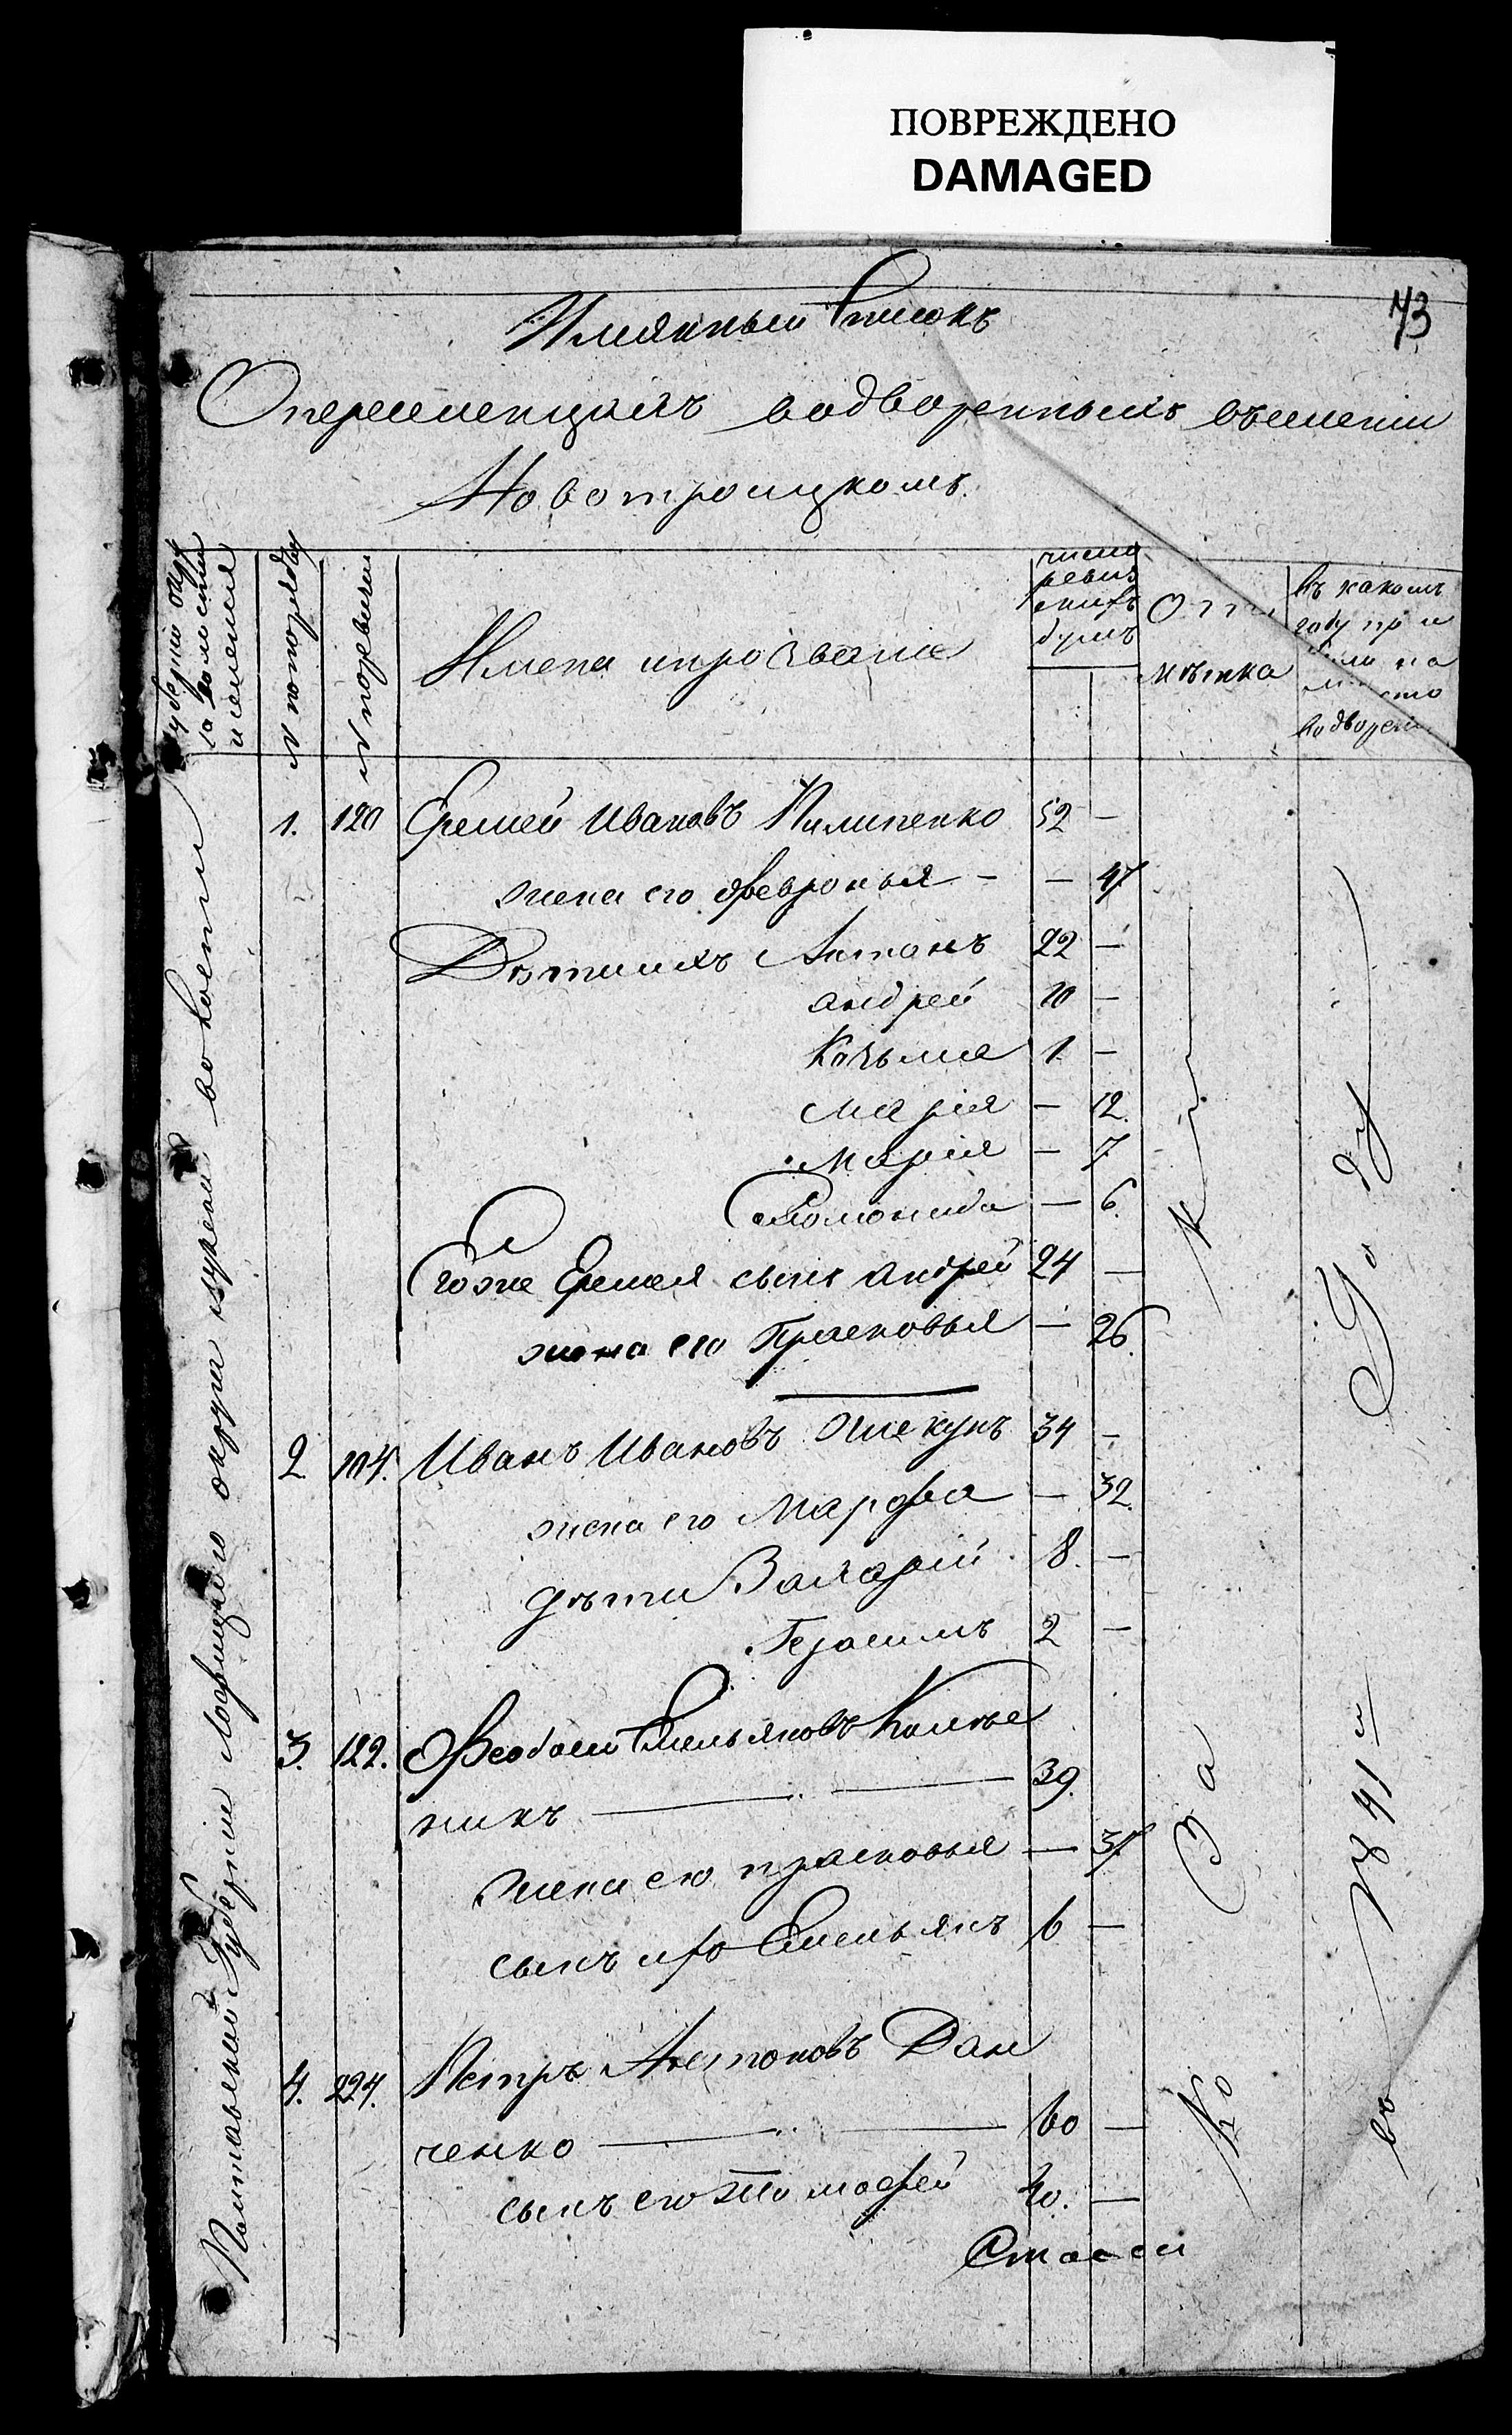 ПОВРЕЖДЕНО
DAMAGED
73
Имянный Списокъ
Опереселенцахъ водворенныхъ въселении
Новотроицкомъ.
Губернии окру
га волости
и селения
N попорядку
N поревизии
Имена ипрозвание
число
ревиз
скихъ
душъ
От
мѣтка
въ какомъ
году при
были на
мѣсто
водворени
Полтавской Губернии округа волости
1. 120 Еремей Ивановъ Пилипенко 52 —
жена его Февронья — — 47
Дѣтиихъ Антонъ 22 —
андрей 10 —
Козьма 1 —
Мария — 12.
Мария — 7
Соломонида — 6.
Егоже Еремея сынъ андрей 24 —
жена его Прасковья — 26.
2 104. Иванъ Ивановъ 34 —
жена его Марфа — 32.
дѣти 8. —
Герасимъ 2 —
3. 122. Феодосий Емельяновъ
никъ — 39.
жена его прасковья — 37
сынъ его Емельянъ 6 —
4. 224. Петръ Антоновъ Дан
ченко — 60 —
сынъ его Тимофей 40. —
Козачки
въ 1841 м Году